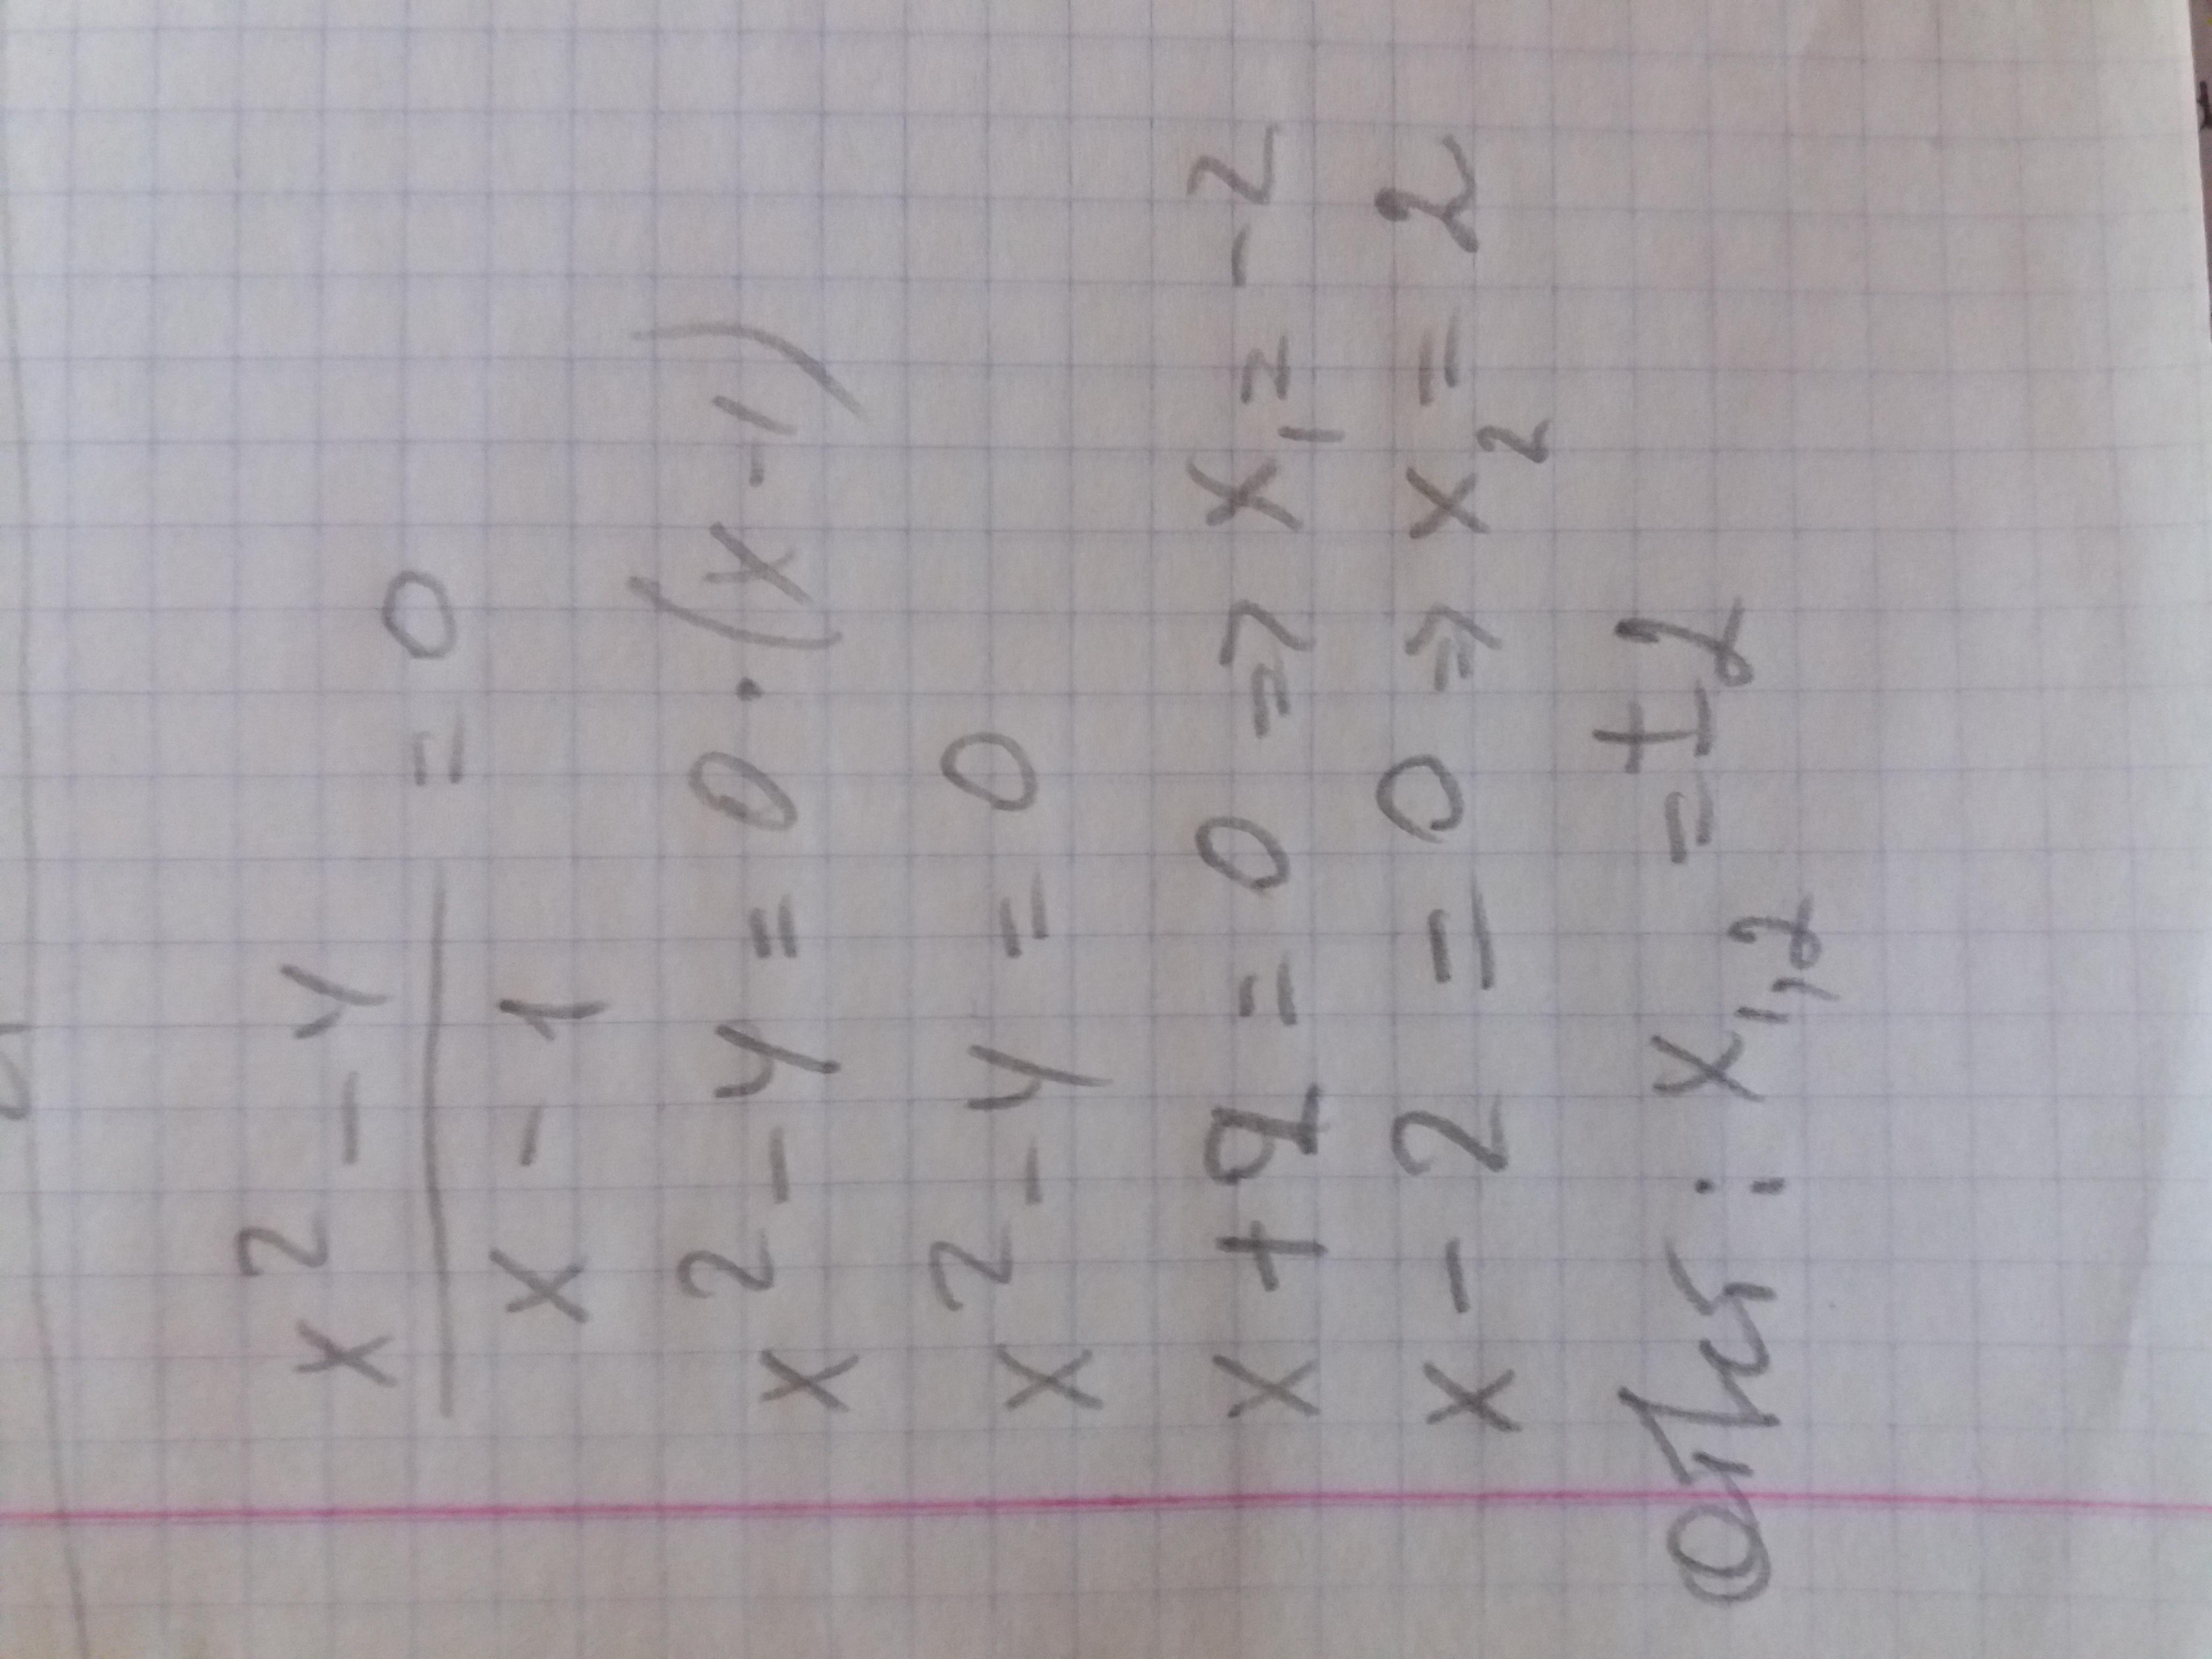 x² - 4
x - 1 = 0
x² - 4 = 0 · (x - 1)
x² - 4 = 0
x + 2 = 0 => x₁ = -2
x - 2 = 0 => x₂ = 2
Ответ: x₁,₂ = ±2